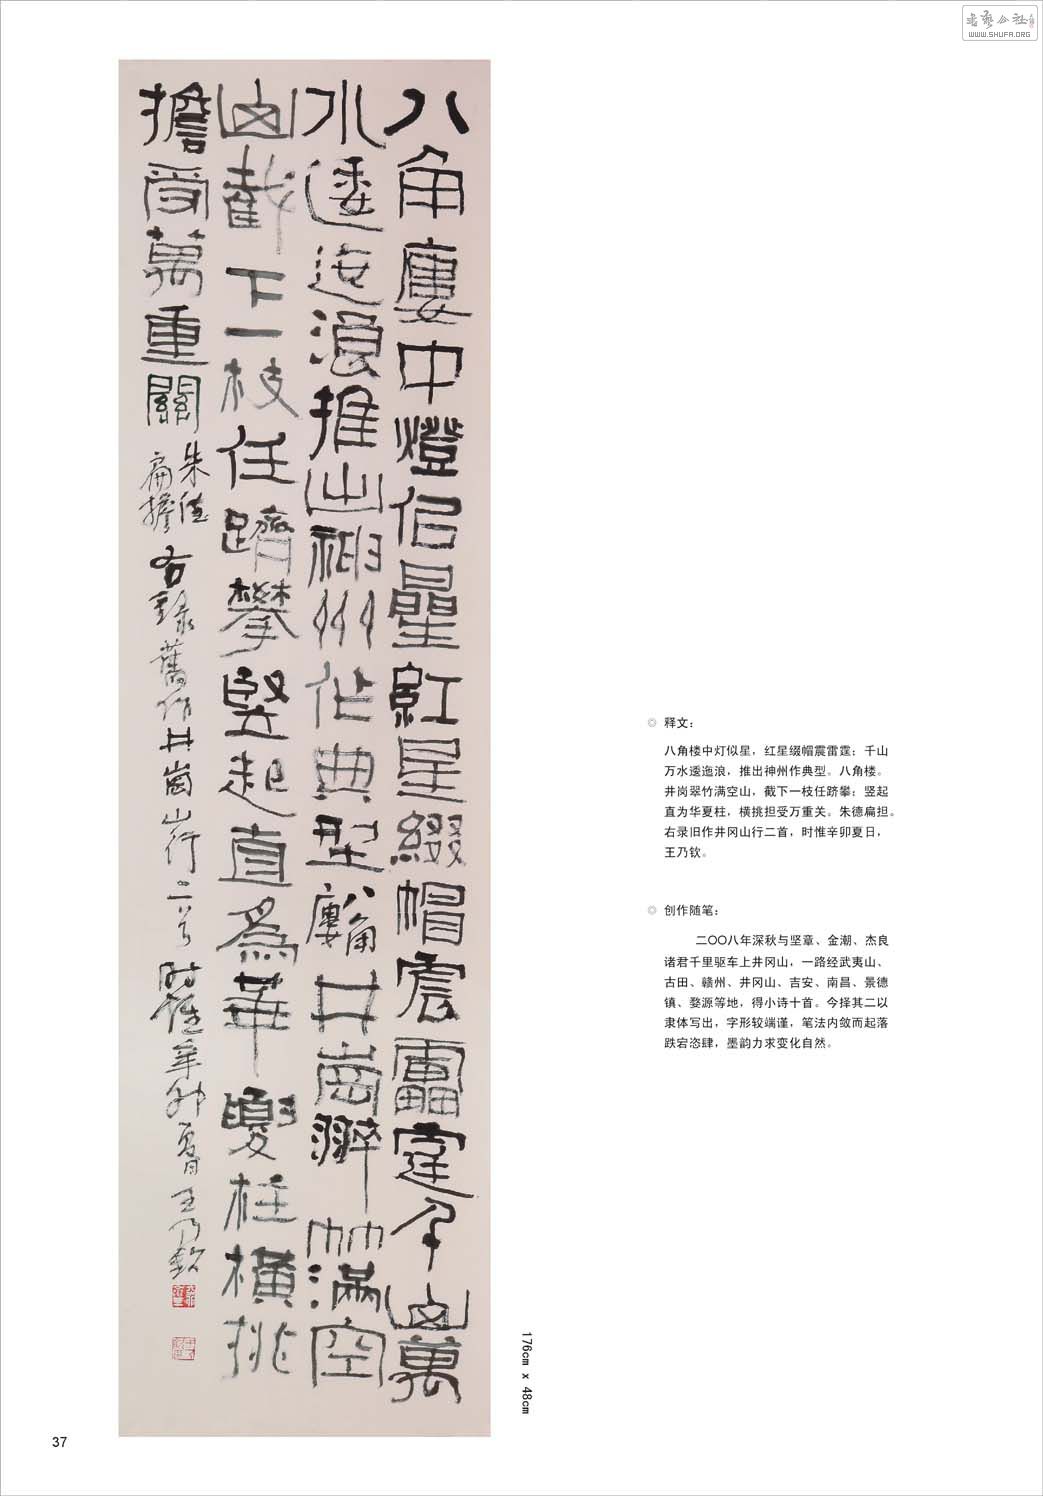 书艺公社
WWW.SHUFA.ORG
八角廔中燈佀曐紅星綴帽震靁霆千山萬
水逶迤浪推出神州作典型八角廔井崗翠竹滿空
山截下一枝任躋攀竪起直為華夏柱橫挑
擔受萬重關
朱德
扁擔
右録舊作井崗山行二首
时惟辛卯夏日王乃欽
176cm x 48cm
◎ 释文：
八角楼中灯似星，红星缀帽震雷霆；千山
万水逶迤浪，推出神州作典型。八角楼。
井岗翠竹满空山，截下一枝任跻攀；竖起
直为华夏柱，横挑担受万重关。朱德扁担。
右录旧作井冈山行二首，时惟辛卯夏日，
王乃钦。
◎ 创作随笔：
二〇〇八年深秋与坚章、金潮、杰良
诸君千里驱车上井冈山，一路经武夷山、
古田、赣州、井冈山、吉安、南昌、景德
镇、婺源等地，得小诗十首。今择其二以
隶体写出，字形较端谨，笔法内敛而起落
跌宕恣肆，墨韵力求变化自然。
37